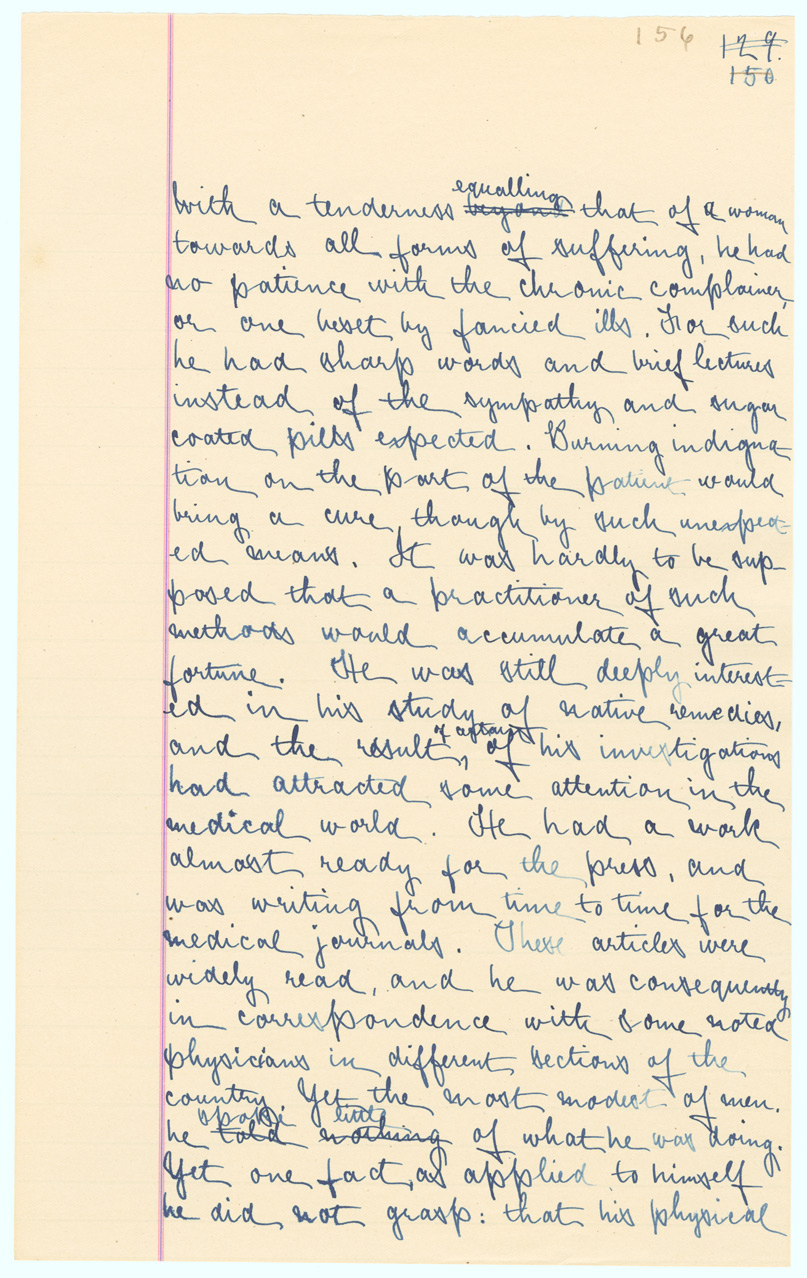 156 129.
150
With a tenderness equalling beyond that of a woman
towards all forms of suffering, he had
no patience with the chronic complainer,
or one beset by fancied ills. For such
he had sharp words and brief lectures
instead of the sympathy and sugar
coated pills expected. Burning indigna-
tion on the part of the patient would
bring a cure, though by such unexpect-
ed means. It was hardly to be sup-
posed that a practitioner of such
methods would accumulate a great
fortune. He was still deeply interest-
ed in his study of native remedies,
and the result, of his investigations
had attracted some attention in the
medical world. He had a work
almost ready for the press, and
was writing from time to time for the
medical journals. These articles were
widely read, and he was consequently
in correspondence with some noted
physicians in different sections of the
country. Yet the most modest of men.
spoke little
he told nothing of what he was doing.
Yet one fact, as applied to himself
he did not grasp: that his physical